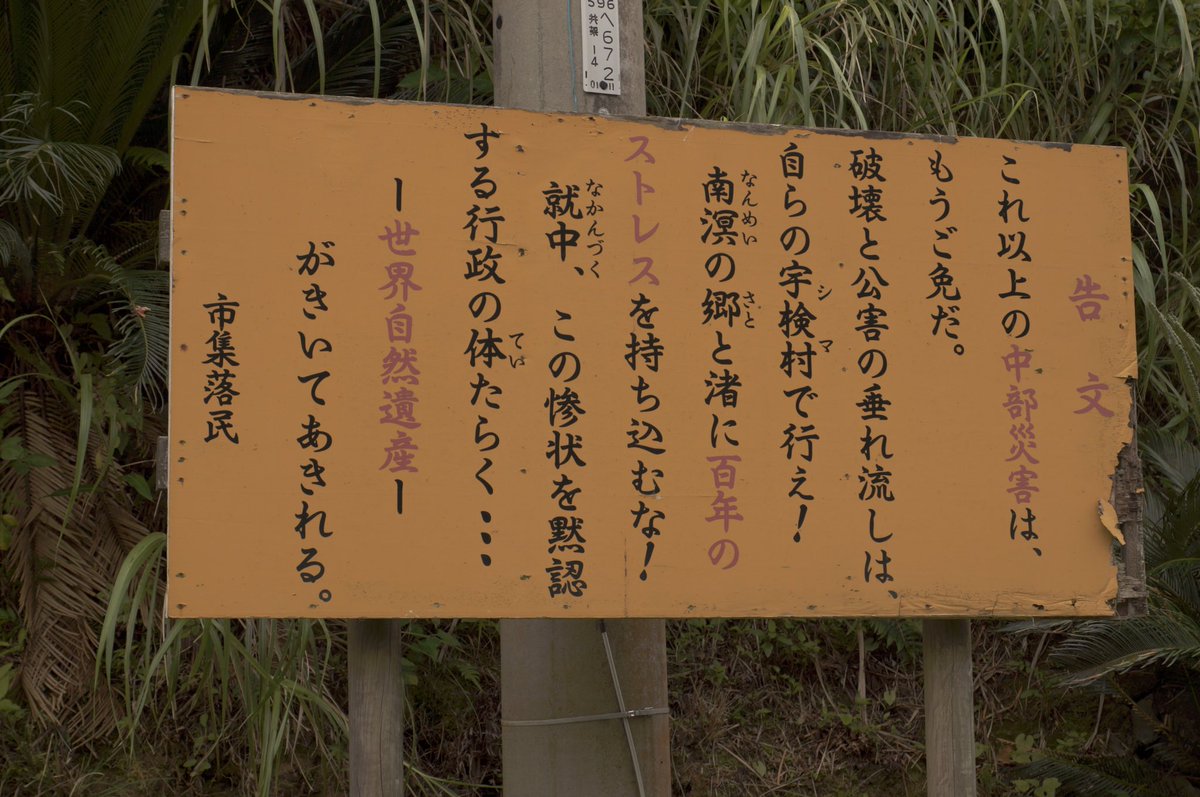 告文
これ以上の中部災害は、
もうご免だ。
破壊と公害の垂れ流しは、
自らの宇検村で行え！
シマ
南溟の郷と渚に百年の
なんめい
さと
ストレスを持ち込むな！
就中、この惨状を黙認
なかんづく
する行政の体たらく・・・
てい
ー世界自然遺産ー
がきいてあきれる。
市集落民
596ヘ672
共架
14
01 11